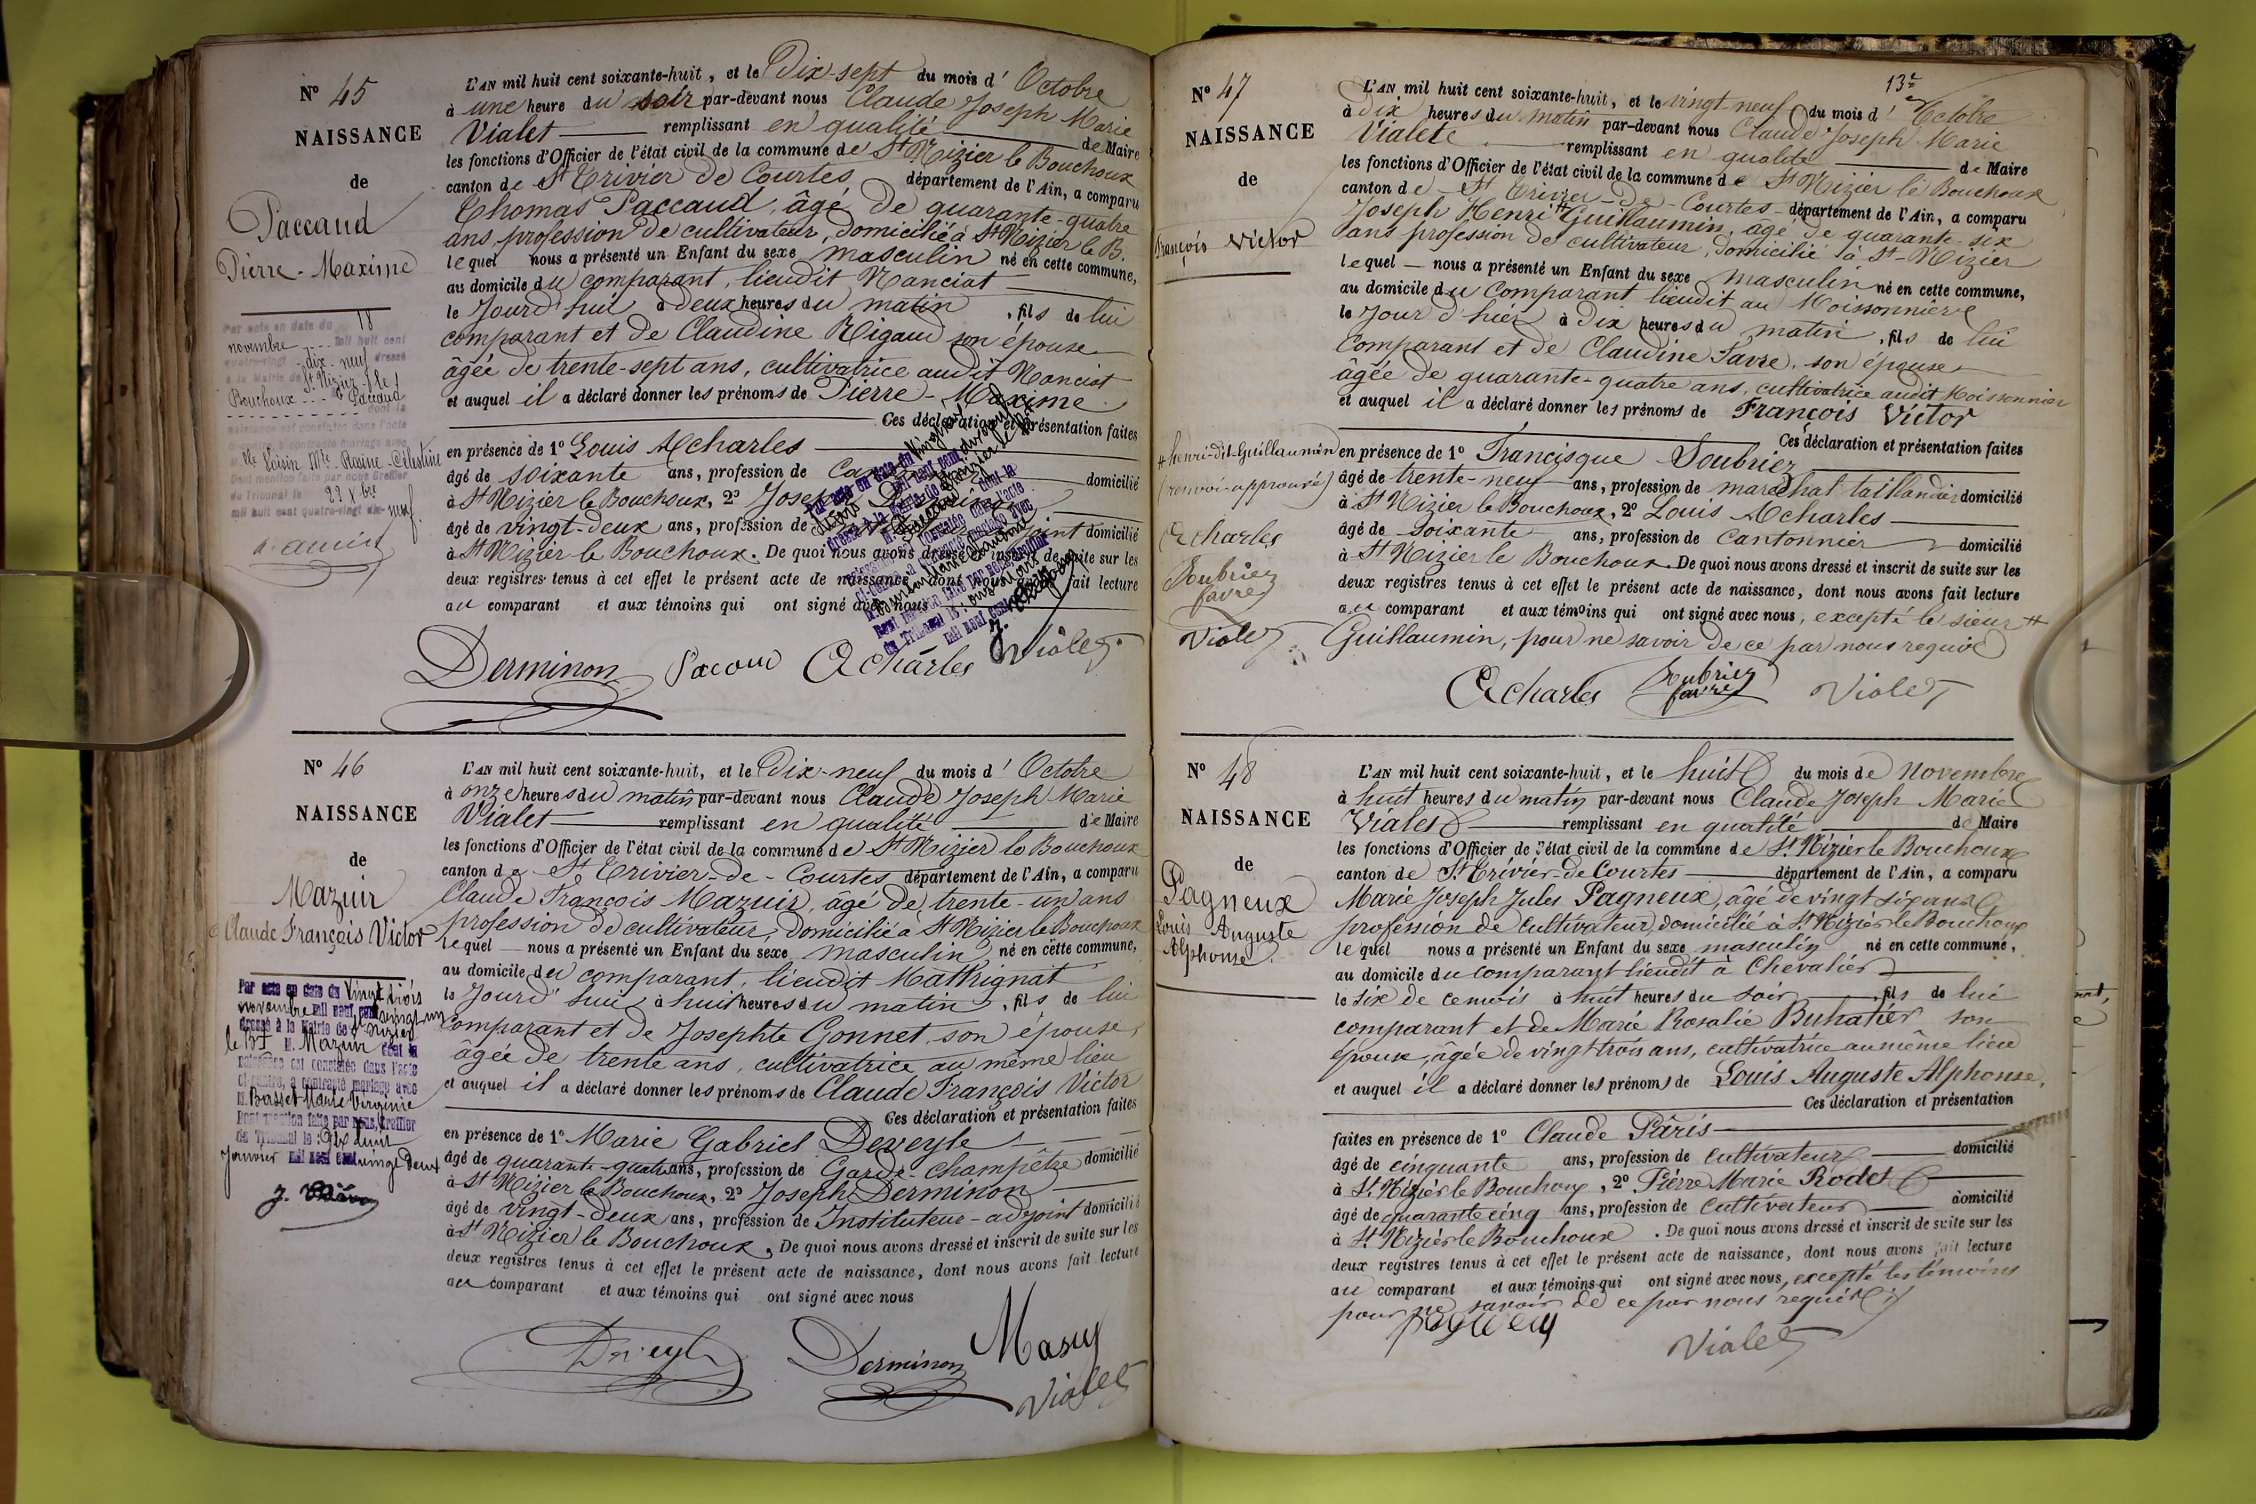 N° 45
NAISSANCE
de
Paccaud
Pierre-Maxime
Par acte en date du 18
novembre mil huit cent
quatre-vingt-dix-neuf dressé
à la Mairie de St Nizier-le-
Bouchoux Paccaud
dont la
naissance est constatée dans l'acte
ci-contre, a contracté mariage avec
Loisin Mie-Rosine-Célestine
Dont mention faite par nous Greffier
du Tribunal le 22 xbre
mil huit cent quatre-vingt dix-neuf.
L'AN mil huit cent soixante-huit, et le Dix-sept du mois d'Octobre
à une heure du soir par-devant nous Claude Joseph Marie
Vialet remplissant en qualité de Maire
les fonctions d'Officier de l'état civil de la commune de St Nizier le Bouchoux
canton de St Trivier de Courtes département de l'Ain, a comparu
Thomas Paccaud, âgé de quarante-quatre
ans, profession de cultivateur, domicilié à St Nizier le B.
lequel nous a présenté un Enfant du sexe masculin né en cette commune,
au domicile du comparant, lieudit Manciat
le Jourd'hui à deux heures du matin, fils de lui
comparant et de Claudine Rigaud son épouse
âgée de trente-sept ans, cultivatrice audit Manciat
et auquel il a déclaré donner les prénoms de Pierre-Maxime
Ces déclaration et présentation faites
en présence de 1° Louis Acharles
âgé de soixante ans, profession de domicilié
à St Nizier le Bouchoux, 2° Joseph
âgé de vingt-deux ans, profession de domicilié
à St Nizier le Bouchoux. De quoi nous avons dressé et inscrit de suite sur les
deux registres tenus à cet effet le présent acte de naissance, dont nous avons fait lecture
au comparant et aux témoins qui ont signé avec nous
Derminon Pacoud Acharles Vialet
N° 46
NAISSANCE
de
Mazuir
Claude François Victor
Par acte en date du Vingt trois
novembre mil neuf cent vingt un
dressé à la Mairie de St Nizier
le Bx M. Mazuir dont la
naissance est constatée dans l'acte
ci-contre, a contracté mariage avec
M. Basset Marie Virginie
Dont mention faite par nous, Greffier
du Tribunal le: dix huit
Janvier mil neuf cent vingt Deux
L'AN mil huit cent soixante-huit, et le Dix-neuf du mois d'Octobre
à onze heures du matin par-devant nous Claude Joseph Marie
Vialet remplissant en qualité de Maire
les fonctions d'Officier de l'état civil de la commune de St Nizier le Bouchoux
canton de St Trivier-de-Courtes département de l'Ain, a comparu
Claude François Mazuir, âgé de trente-un ans
profession de cultivateur, domicilié à St Nizier le Bouchoux
lequel nous a présenté un Enfant du sexe masculin né en cette commune,
au domicile du comparant, lieudit Mattrignat
le Jourd'hui à huit heures du matin, fils de lui
comparant et de Josephte Gonnet, son épouse,
âgée de trente ans, cultivatrice au même lieu
et auquel il a déclaré donner les prénoms de Claude François Victor
Ces déclaration et présentation faites
en présence de 1° Marie Gabriel Deveyle
âgé de quarante-quatre ans, profession de Garde-Champêtre domicilié
à St Nizier le Bouchoux, 2° Joseph Derminon
âgé de vingt-deux ans, profession de Instituteur-adjoint domicilié
à St Nizier le Bouchoux. De quoi nous avons dressé et inscrit de suite sur les
deux registres tenus à cet effet le présent acte de naissance, dont nous avons fait lecture
au comparant et aux témoins qui ont signé avec nous
Deveyle Derminon Masuy
Vialet
13e
N° 47
NAISSANCE
de
François Victor
# henri-dit-Guillaumin
(renvoi approuvé)
Acharles
Soubriez
favre
Vialet
L'AN mil huit cent soixante-huit, et le vingt-neuf du mois d'Octobre
à Dix heures du matin par-devant nous Claude Joseph Marie
Vialet remplissant en qualité de Maire
les fonctions d'Officier de l'état civil de la commune de St Nizier le Bouchoux
canton de St Trivier-de-Courtes département de l'Ain, a comparu
Joseph Henri # Guillaumin, âgé de quarante-six
ans profession de cultivateur, domicilié à St-Nizier
lequel nous a présenté un Enfant du sexe masculin né en cette commune,
au domicile du Comparant lieudit au Moissonnière
le Jour d'hier à Dix heures du matin, fils de lui
Comparant et de Claudine Favre, son épouse
âgée de quarante-quatre ans, cultivatrice audit Moissonnier
et auquel il a déclaré donner les prénoms de François Victor
Ces déclaration et présentation faites
en présence de 1° Francisque Soubriez
âgé de trente-neuf ans, profession de maréchal taillandier domicilié
à St Nizier le Bouchoux, 2° Louis Acharles
âgé de soixante ans, profession de Cantonnier domicilié
à St Nizier le Bouchoux. De quoi nous avons dressé et inscrit de suite sur les
deux registres tenus à cet effet le présent acte de naissance, dont nous avons fait lecture
au comparant et aux témoins qui ont signé avec nous, excepté le sieur #
Guillaumin, pour ne savoir de ce par nous requis
Acharles Soubriez favre Vialet
N° 48
NAISSANCE
de
Pagneux
Louis Auguste
Alphonse
L'AN mil huit cent soixante-huit, et le huit du mois de novembre
à huit heures du matin par-devant nous Claude Joseph Marie
Vialet remplissant en qualité de Maire
les fonctions d'Officier de l'état civil de la commune de St. Nizier le Bouchoux
canton de St. Trivier-de-Courtes département de l'Ain, a comparu
Marie Joseph Jules Pagneux, âgé de vingt six ans
profession de cultivateur, domicilié à St. Nizier le Bouchoux
lequel nous a présenté un Enfant du sexe masculin né en cette commune,
au domicile du comparant lieudit à Chevalier
le six de ce mois à huit heures du soir, fils de lui
comparant et de Marie Rosalie Buhatier son
épouse, âgée de vingt trois ans, cultivatrice au même lieu
et auquel il a déclaré donner les prénoms de Louis Auguste Alphonse,
Ces déclaration et présentation
faites en présence de 1° Claude Pâris
âgé de cinquante ans, profession de cultivateur domicilié
à St. Nizier le Bouchoux, 2° Pierre Marie Rodet
âgé de quarante cinq ans, profession de cultivateur domicilié
à St. Nizier le Bouchoux. De quoi nous avons dressé et inscrit de suite sur les
deux registres tenus à cet effet le présent acte de naissance, dont nous avons fait lecture
au comparant et aux témoins qui ont signé avec nous, excepté les témoins
pour ne savoir de ce par nous requis
Vialet